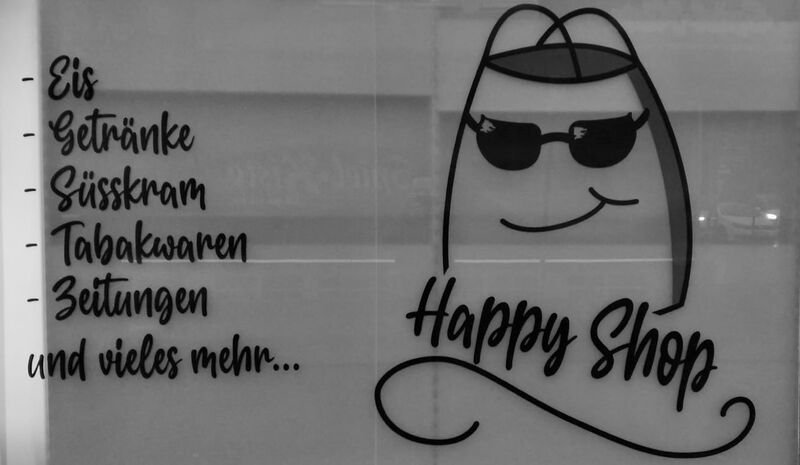 - Eis
- Getränke
- Süsskram
- Tabakwaren
- Zeitungen
und vieles mehr...
Happy Shop